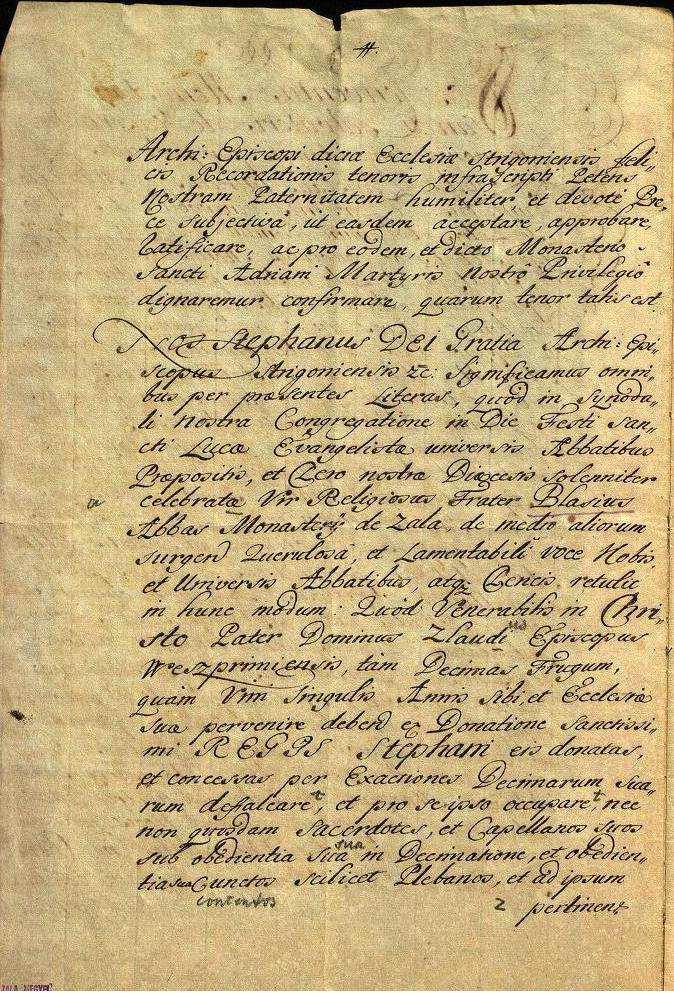 #
Archi: Episcopi dictæ Ecclesiæ Strigoniensis feli„
cis Recordationis tenoris infrascripti Petens
Nostram Paternitatem humiliter, et devotè Pre„
ce subjectiva, út easdem acceptare, approbare,
ratificare, ac pro eodem, et dicto Monasterio
Sancti Adriani Martyris Nostro Privilegiò
dignaremur confirmare, quarum tenor talis est
Nos Stephanus DEI Gratia Archi: Epi„
scopus Strigoniensis &c: Significamus omni„
bus per præsentes Literas, quòd in Synoda„
li nostra Congregatione in Die Festi San„
cti Lucæ Evangelistæ universis Abbatibus
Præpositis, et Clero nostræ Diœcesis solenniter
celebratæ Vir Religiosus Frater Blasius
Abbas Monasterÿ de Zala, de medio aliorum
surgens Querulosâ, et Lamentabili voce Nobis,
et Universis Abbatibus, atq; Clericis retulit
in hunc modum: Quòd Venerabilis in Chri„
sto Pater Dominus Zlaudius Episcopus
Weszprimiensis, tàm Decimas Frugum,
quàm Vini Singulis Annis sibi, et Ecclesiæ
suæ pervenire debens ex Donatione Sanctissi„
mi REGIS Stephani eis donatas,
et concessas per Exactiones Decimarum sua„
rum defalcaret, et pro se ipso occuparet, nec
non quosdam Sacerdotes, et Capellanos suos
sub obedientia sua in Decimatione, et obedien„
sua
tia sua Cunctos scilicet Plebanos, et ad ipsum
contentos
2 pertinent